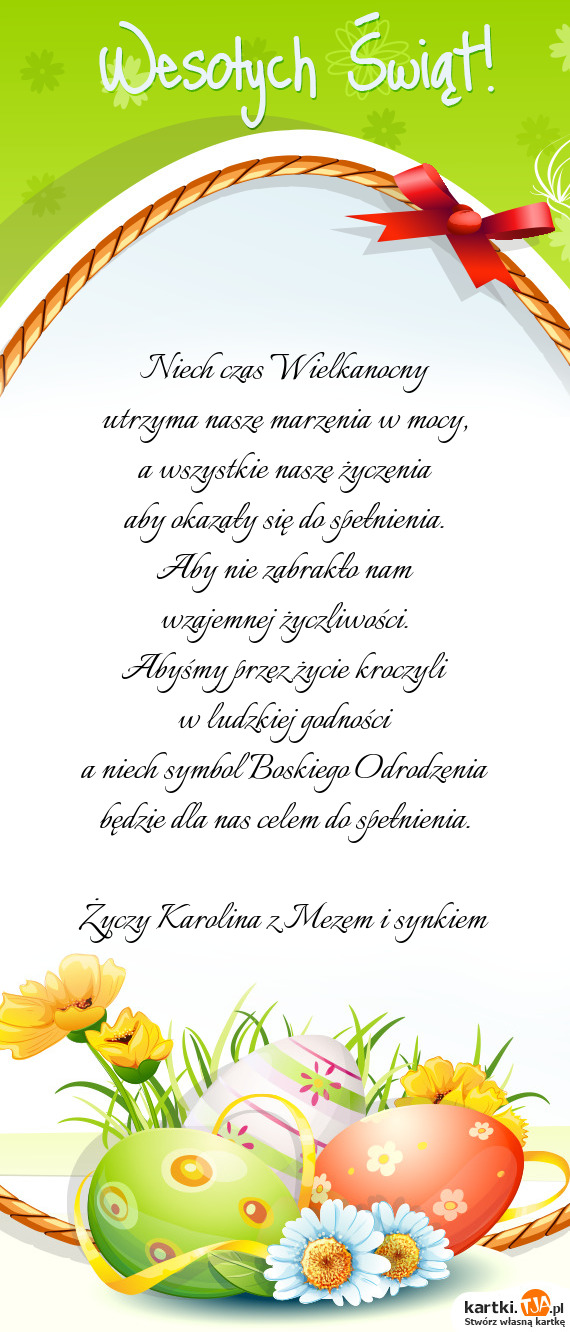 Wesołych Świąt!
Niech czas Wielkanocny
utrzyma naszę marzenia w mocy,
a wszystkie naszę życzenia
aby okazały się do spełnienia.
Aby nie zabrakło nam
wzajemnej życzliwości.
Abyśmy przez życie kroczyli
w ludzkiej godności
a niech symbol Boskiego Odrodzenia
będzie dla nas celem do spełnienia.
Życzy Karolina z Mezem i synkiem
kartki.TJA.pl
Stwórz własną kartkę